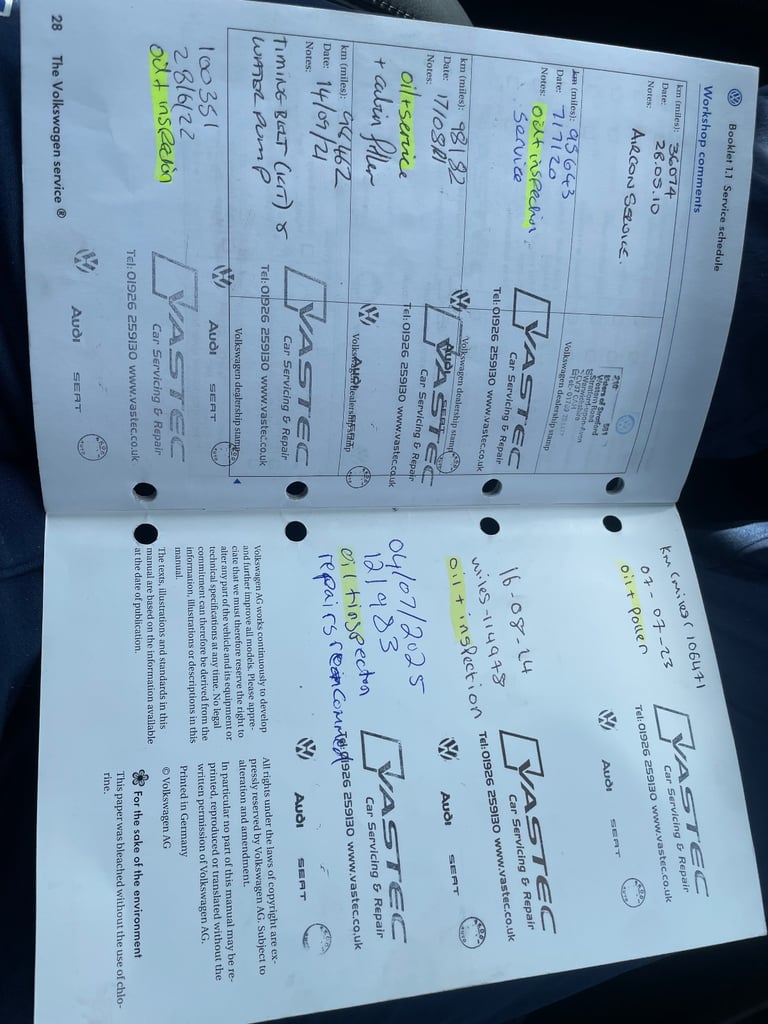 Booklet 1.1 Service schedule
Workshop comments
km (miles): 36074
Date: 28.05.10
Notes:
AIRCON SERVICE.
Volkswagen dealership stamp
km (miles): 95643
Date: 7/7/20
Notes: oil+inspection
service
VASTEC
Car Servicing & Repair
Tel: 01926 259130 www.vastec.co.uk
Audi SEAT
Volkswagen dealership stamp
km (miles): 98182
Date: 17/08/21
Notes:
oil+service
+ cabin filter
VASTEC
Car Servicing & Repair
Tel: 01926 259130 www.vastec.co.uk
Audi SEAT
Volkswagen dealership stamp
km (miles): 98462
Date: 14/09/21
Notes:
TIMING BELT (KIT) &
WATER PUMP
VASTEC
Car Servicing & Repair
Tel: 01926 259130 www.vastec.co.uk
Audi SEAT
Volkswagen dealership stamp
100351
28/6/22
oil+ inspection
VASTEC
Car Servicing & Repair
Tel: 01926 259130 www.vastec.co.uk
Audi SEAT
28 The Volkswagen service ®
km (miles) 106471
07-07-23
oil+pollen
VASTEC
Car Servicing & Repair
Tel: 01926 259130 www.vastec.co.uk
Audi SEAT
16-08-24
miles-114978
oil + inspection
VASTEC
Car Servicing & Repair
Tel: 01926 259130 www.vastec.co.uk
Audi SEAT
04/07/2025
121983
oil+inspection
repairs
VASTEC
Car Servicing & Repair
Tel: 01926 259130 www.vastec.co.uk
Audi SEAT
Volkswagen AG works continuously to develop
and further improve all models. Please appre-
ciate that we must therefore reserve the right to
alter any part of the vehicle and its equipment or
technical specifications at any time. No legal
commitment can therefore be derived from the
information, illustrations or descriptions in this
manual.
The texts, illustrations and standards in this
manual are based on the information available
at the date of publication.
All rights under the laws of copyright are ex-
pressly reserved by Volkswagen AG. Subject to
alteration and amendment.
In particular no part of this manual may be re-
printed, reproduced or translated without the
written permission of Volkswagen AG.
Printed in Germany
© Volkswagen AG
For the sake of the environment
This paper was bleached without the use of chlo-
rine.